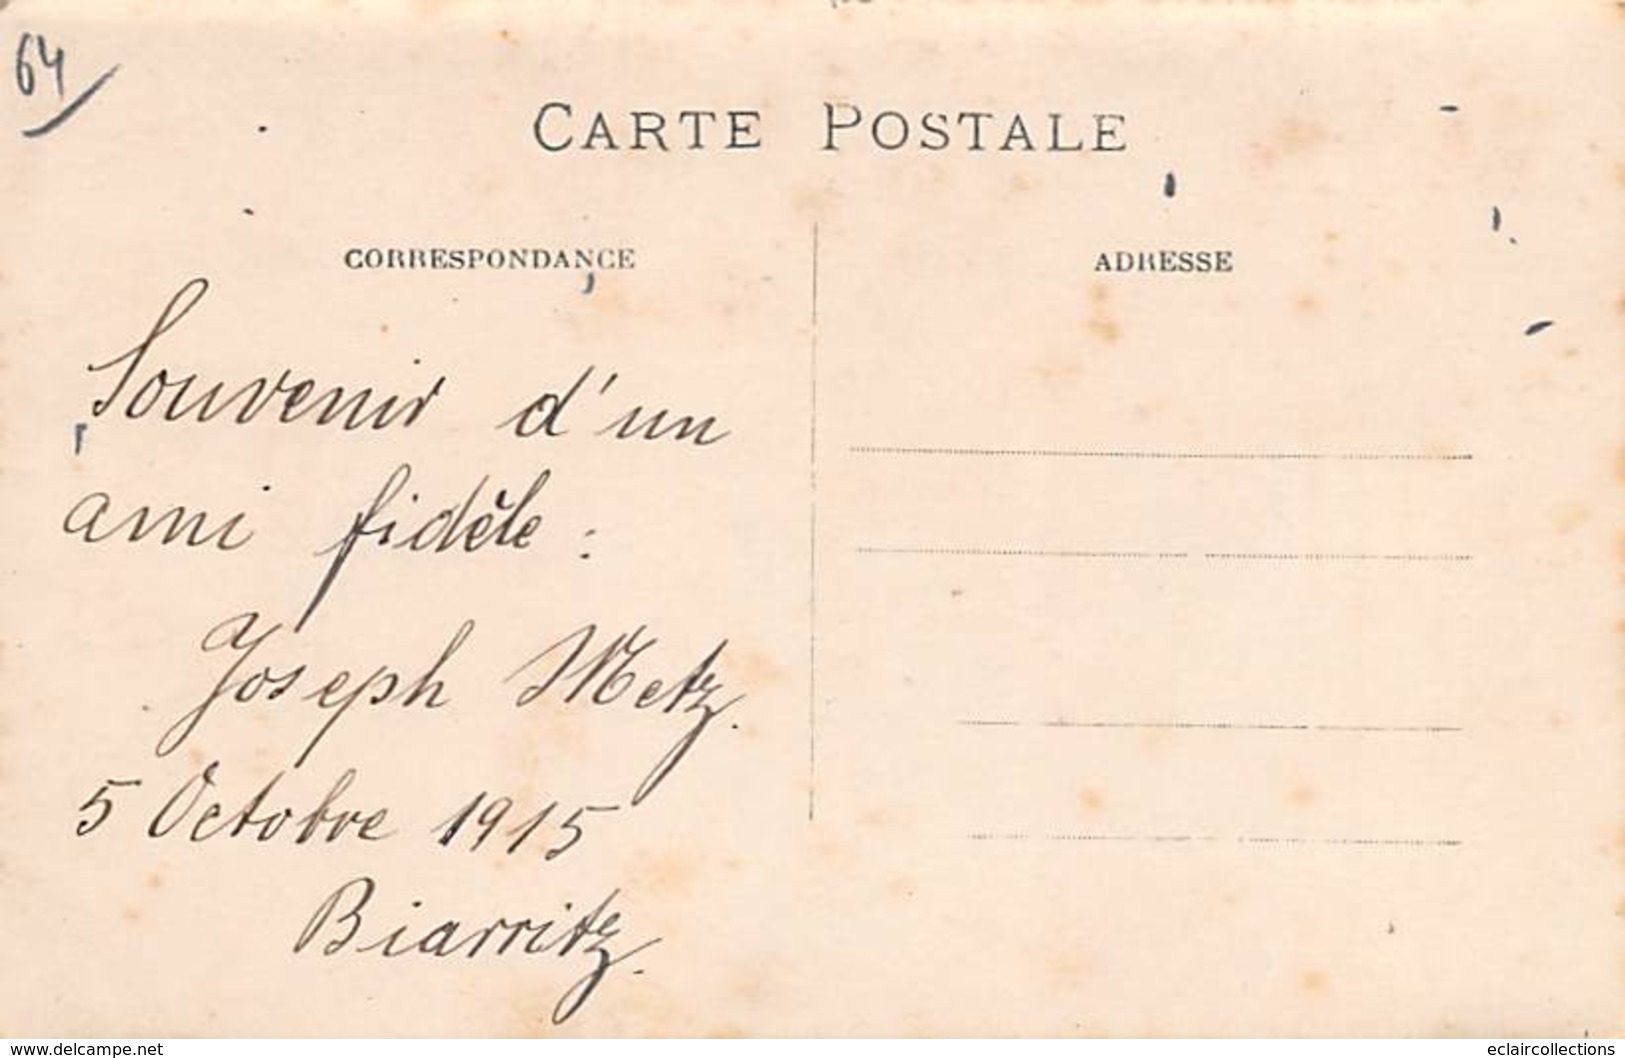 64
CARTE POSTALE
CORRESPONDANCE
ADRESSE
Souvenir d'un
ami fidèle :
Joseph Metz.
5 Octobre 1915
Biarritz.
www.delcampe.net
eclaircollections